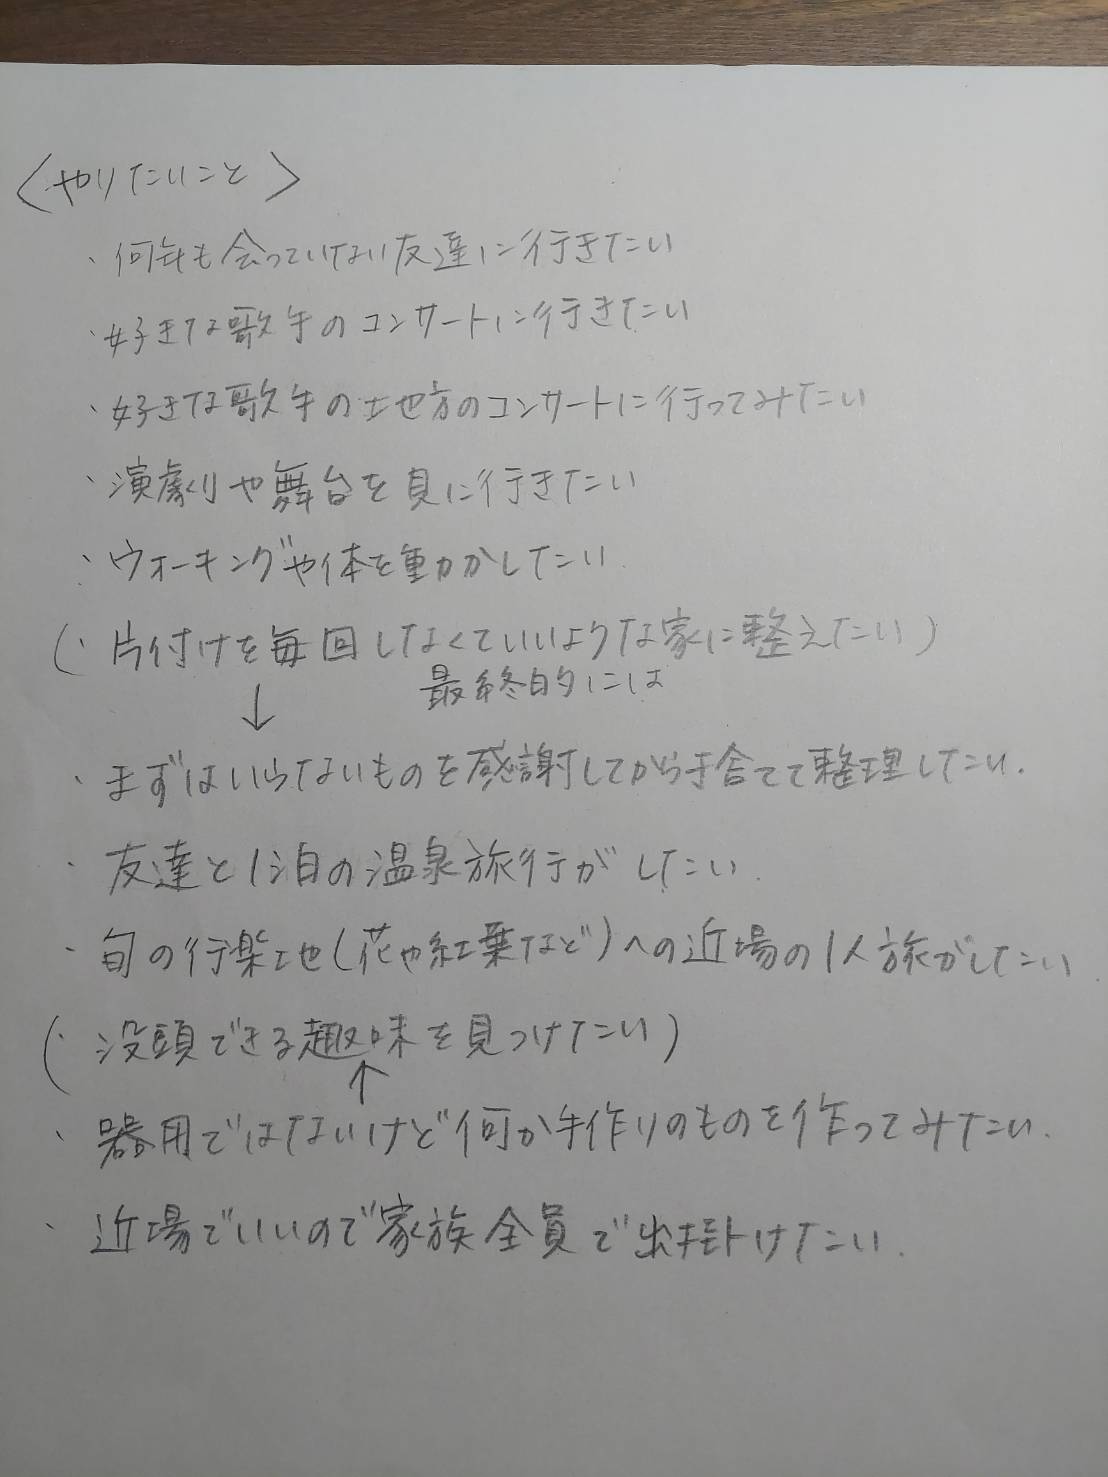 〈やりたいこと〉
・何年も会っていない友達に行きたい
・好きな歌手のコンサートに行きたい
・好きな歌手の地方のコンサートに行ってみたい
・演劇や舞台を見に行きたい
・ウォーキングや体を動かしたい
(・片付けを毎回しなくていいような家に整えたい)
↓ 最終的には
・まずはいらないものを感謝してから捨てて整理したい.
・友達と1泊の温泉旅行がしたい.
・旬の行楽地(花や紅葉など)への近場の1人旅がしたい
(・没頭できる趣味を見つけたい)
↑
・器用ではないけど何か手作りのものを作ってみたい.
・近場でいいので家族全員で出掛けたい.